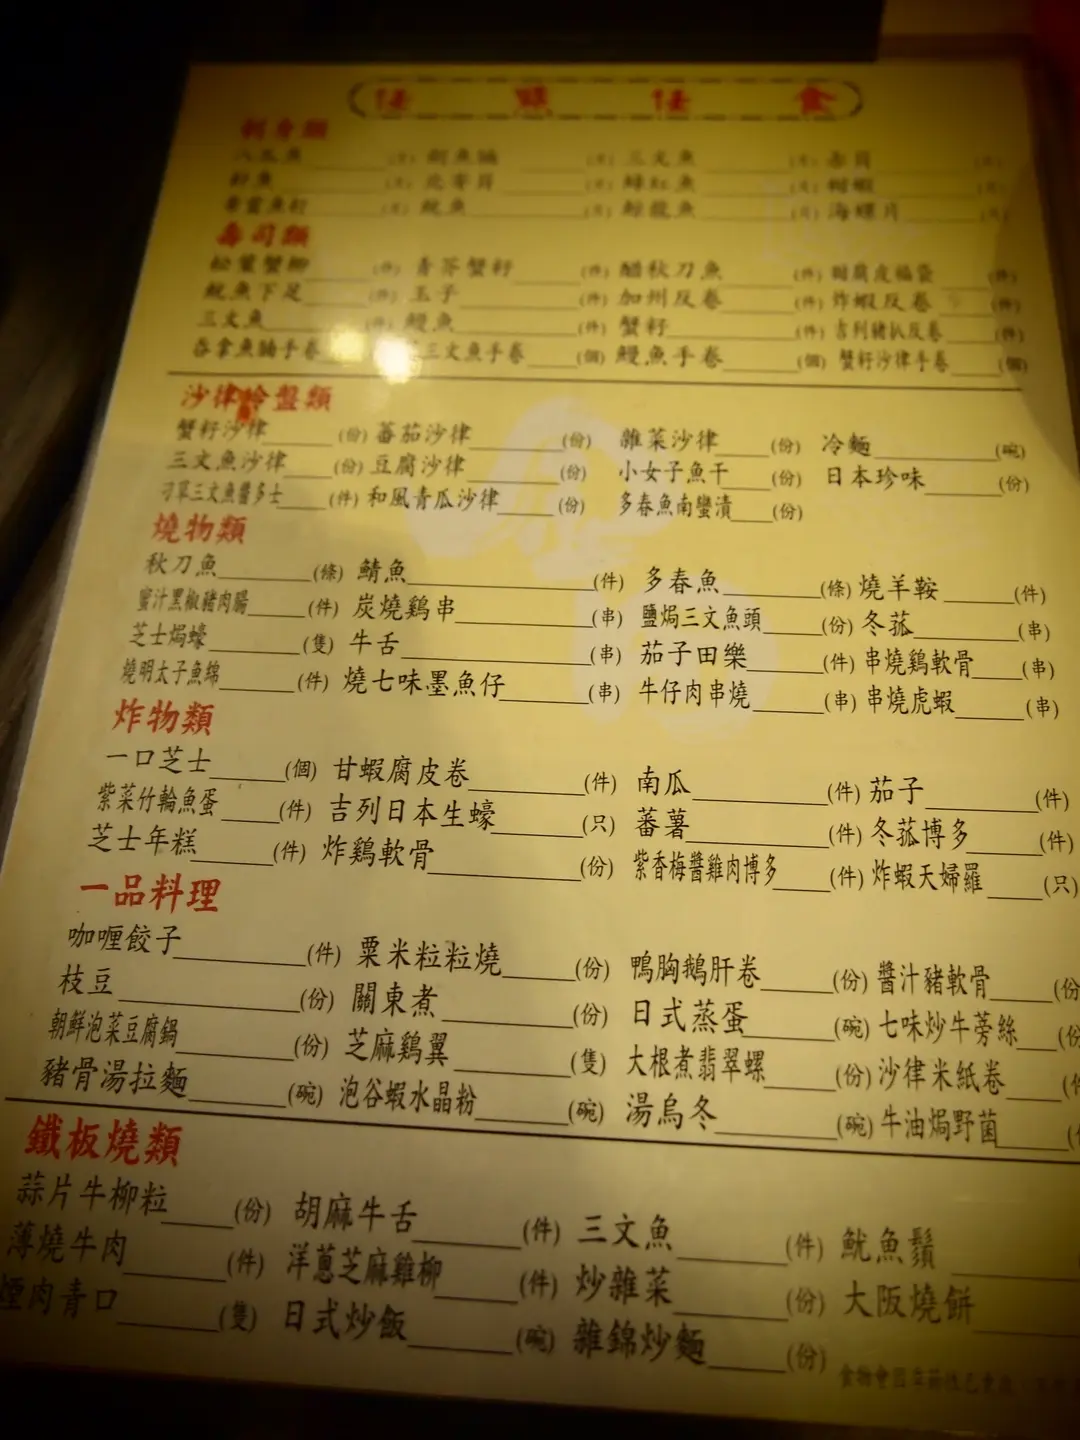 任 點 任 食
刺身類
八爪魚______(片) 劍魚腩______(片) 三文魚______(片) 赤貝______(片)
魷魚______(片) 北寄貝______(片) 希靈魚籽______(片) 鯨龍魚______(片) 海螺片______(片)
壽司類
松葉蟹柳______(件) 青芥蟹籽______(件) 醋秋刀魚______(件) 甜腐皮福袋______(件)
魷魚下足______(件) 玉子______(件) 加州反卷______(件) 炸蝦反卷______(件)
三文魚______(件) 鰻魚______(件) 蟹籽______(件) 吉列豬扒反卷______(件)
吞拿魚腩手卷 三文魚手卷______(個) 鰻魚手卷______(個) 蟹籽沙律手卷______(個)
沙律冷盤類
蟹籽沙律______(份) 蕃茄沙律______(份) 雜菜沙律______(份) 冷麵______(碗)
三文魚沙律______(份) 豆腐沙律______(份) 小女子魚干______(份) 日本珍味______(份)
刁草三文魚醬多士______(件) 和風青瓜沙律______(份) 多春魚南蠻漬______(份)
燒物類
秋刀魚______(條) 鯖魚______(件) 多春魚______(條) 燒羊鞍______(件)
蜜汁黑椒豬肉腸______(件) 炭燒鷄串______(串) 鹽焗三文魚頭______(份) 冬菰______(串)
芝士焗蠔______(隻) 牛舌______(串) 茄子田樂______(件) 串燒鷄軟骨______(串)
燒明太子魚綿______(件) 燒七味墨魚仔______(串) 牛仔肉串燒______(串) 串燒虎蝦______(串)
炸物類
一口芝士______(個) 甘蝦腐皮卷______(件) 南瓜______(件) 茄子______(件)
紫菜竹輪魚蛋______(件) 吉列日本生蠔______(只) 蕃薯______(件) 冬菰博多______(件)
芝士年糕______(件) 炸鷄軟骨______(份) 紫香梅醬雞肉博多______(件) 炸蝦天婦羅______(只)
一品料理
咖喱餃子______(件) 粟米粒粒燒______(份) 鴨胸鵝肝卷______(份) 醬汁豬軟骨______(份
枝豆______(份) 關東煮______(份) 日式蒸蛋______(碗) 七味炒牛蒡絲______(份
朝鮮泡菜豆腐鍋______(份) 芝麻鷄翼______(隻) 大根煮翡翠螺______(份) 沙律米紙卷______(
豬骨湯拉麵______(碗) 泡谷蝦水晶粉______(碗) 湯烏冬______(碗) 牛油焗野菌______(
鐵板燒類
蒜片牛柳粒______(份) 胡麻牛舌______(件) 三文魚______(件) 魷魚鬚______
薄燒牛肉______(件) 洋蔥芝麻雞柳______(件) 炒雜菜______(份) 大阪燒餅______
煙肉青口______(隻) 日式炒飯______(碗) 雜錦炒麵______(份)